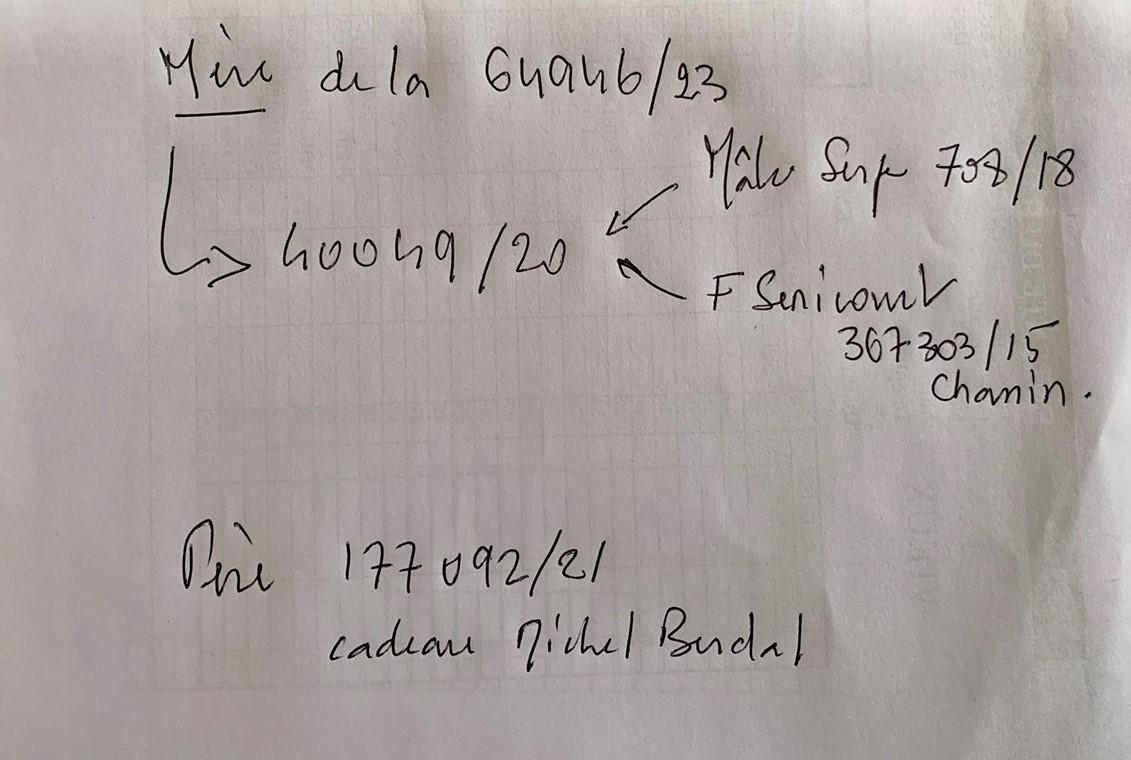 Mère de la 64946/23
Mâle Serge 708/18
40049/20
F Senicourt
367.303/15
Chamin.
Père 177092/21
cadeau Michel Burdal